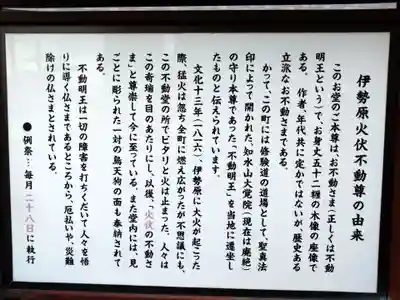 伊勢原火伏不動尊の由来
このお堂のご本尊は、お不動さま(正しくは不動
明王という)で、お身丈五十二糎の木像の座像で
ある。作者、年代共に定かではないが、歴史ある
立派なお不動さまである。
かって、この町には修験道の道場として、聖真法
印によって開かれた、知水山大覚院(現在は廃絶)
の守り本尊であった「不動明王」を当地に遷坐し
たものと伝えられています。
文化十三年(一八一六)、伊勢原に大火が起こった
際、猛火は忽ち全町に燃え広がったが不思議にも、
この不動堂の所でピタリと火は止まった。人々は
この奇瑞を目のあたりにし、以後、「火伏の不動さ
ま」と尊崇して今に至っている。また堂内には、見
ごとに彫られた一対の烏天狗の面も奉納されて
ある。
不動明王は一切の障害を打ちくだいて人々を悟
りに導く仏さまであるところから、厄払いや、災難
除けの仏さまとされている。
●例祭…毎月二十八日に執行